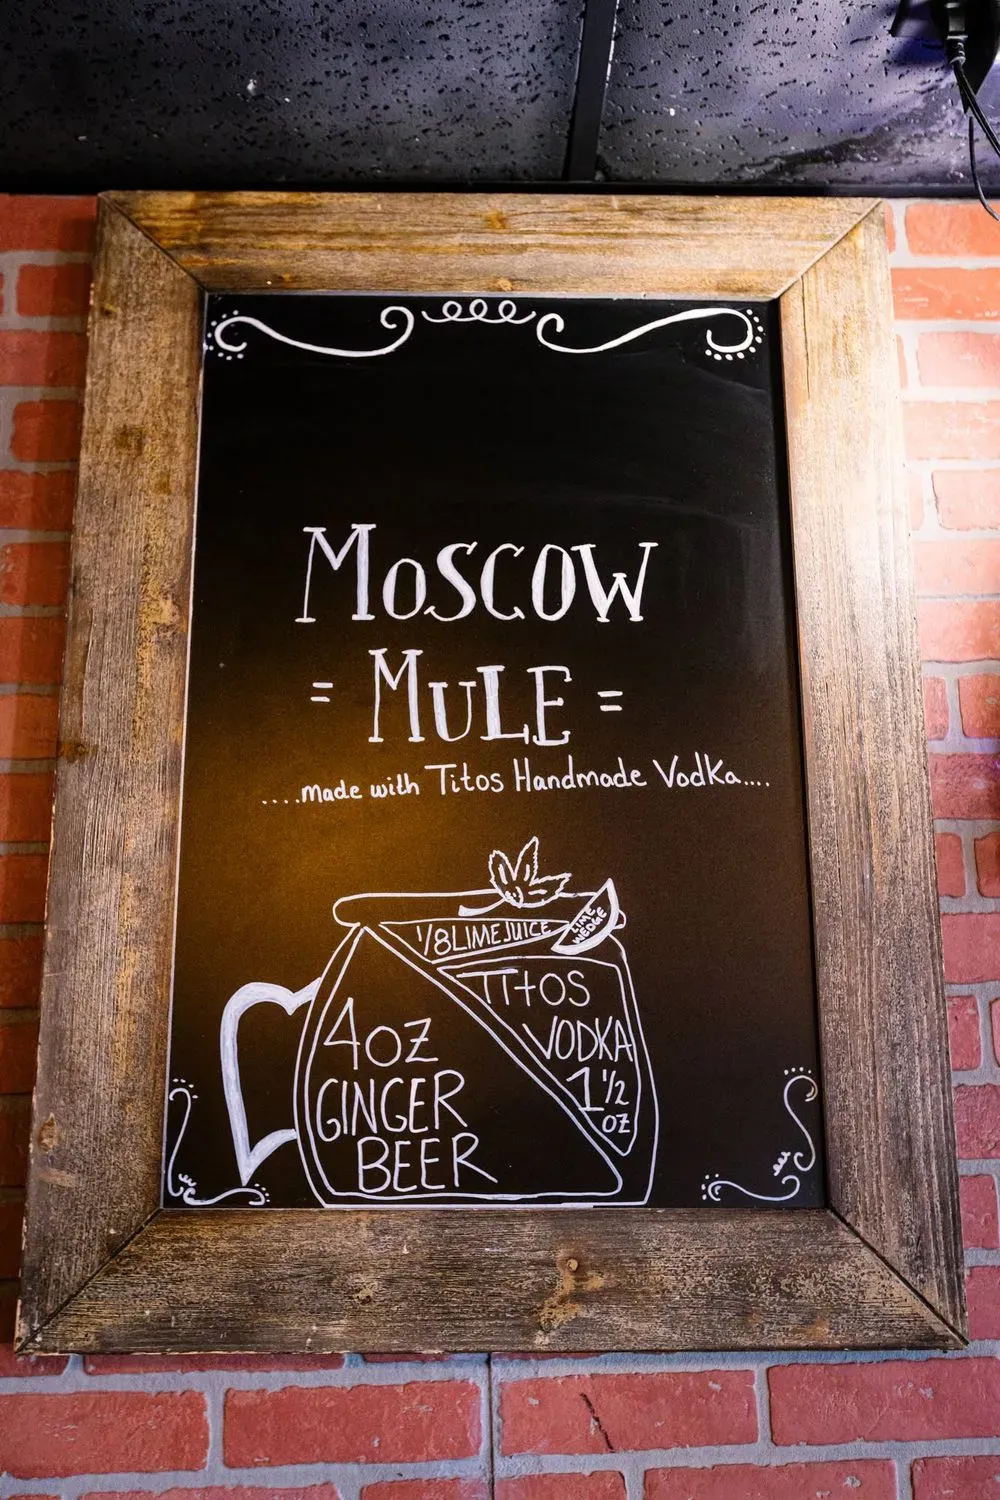 Moscow
= Mule =
....made with Titos Handmade Vodka....
1/8 LIME JUICE
LIME
WEDGE
TitOS
VODKA
1 1/2
OZ
4OZ
GINGER
BEER